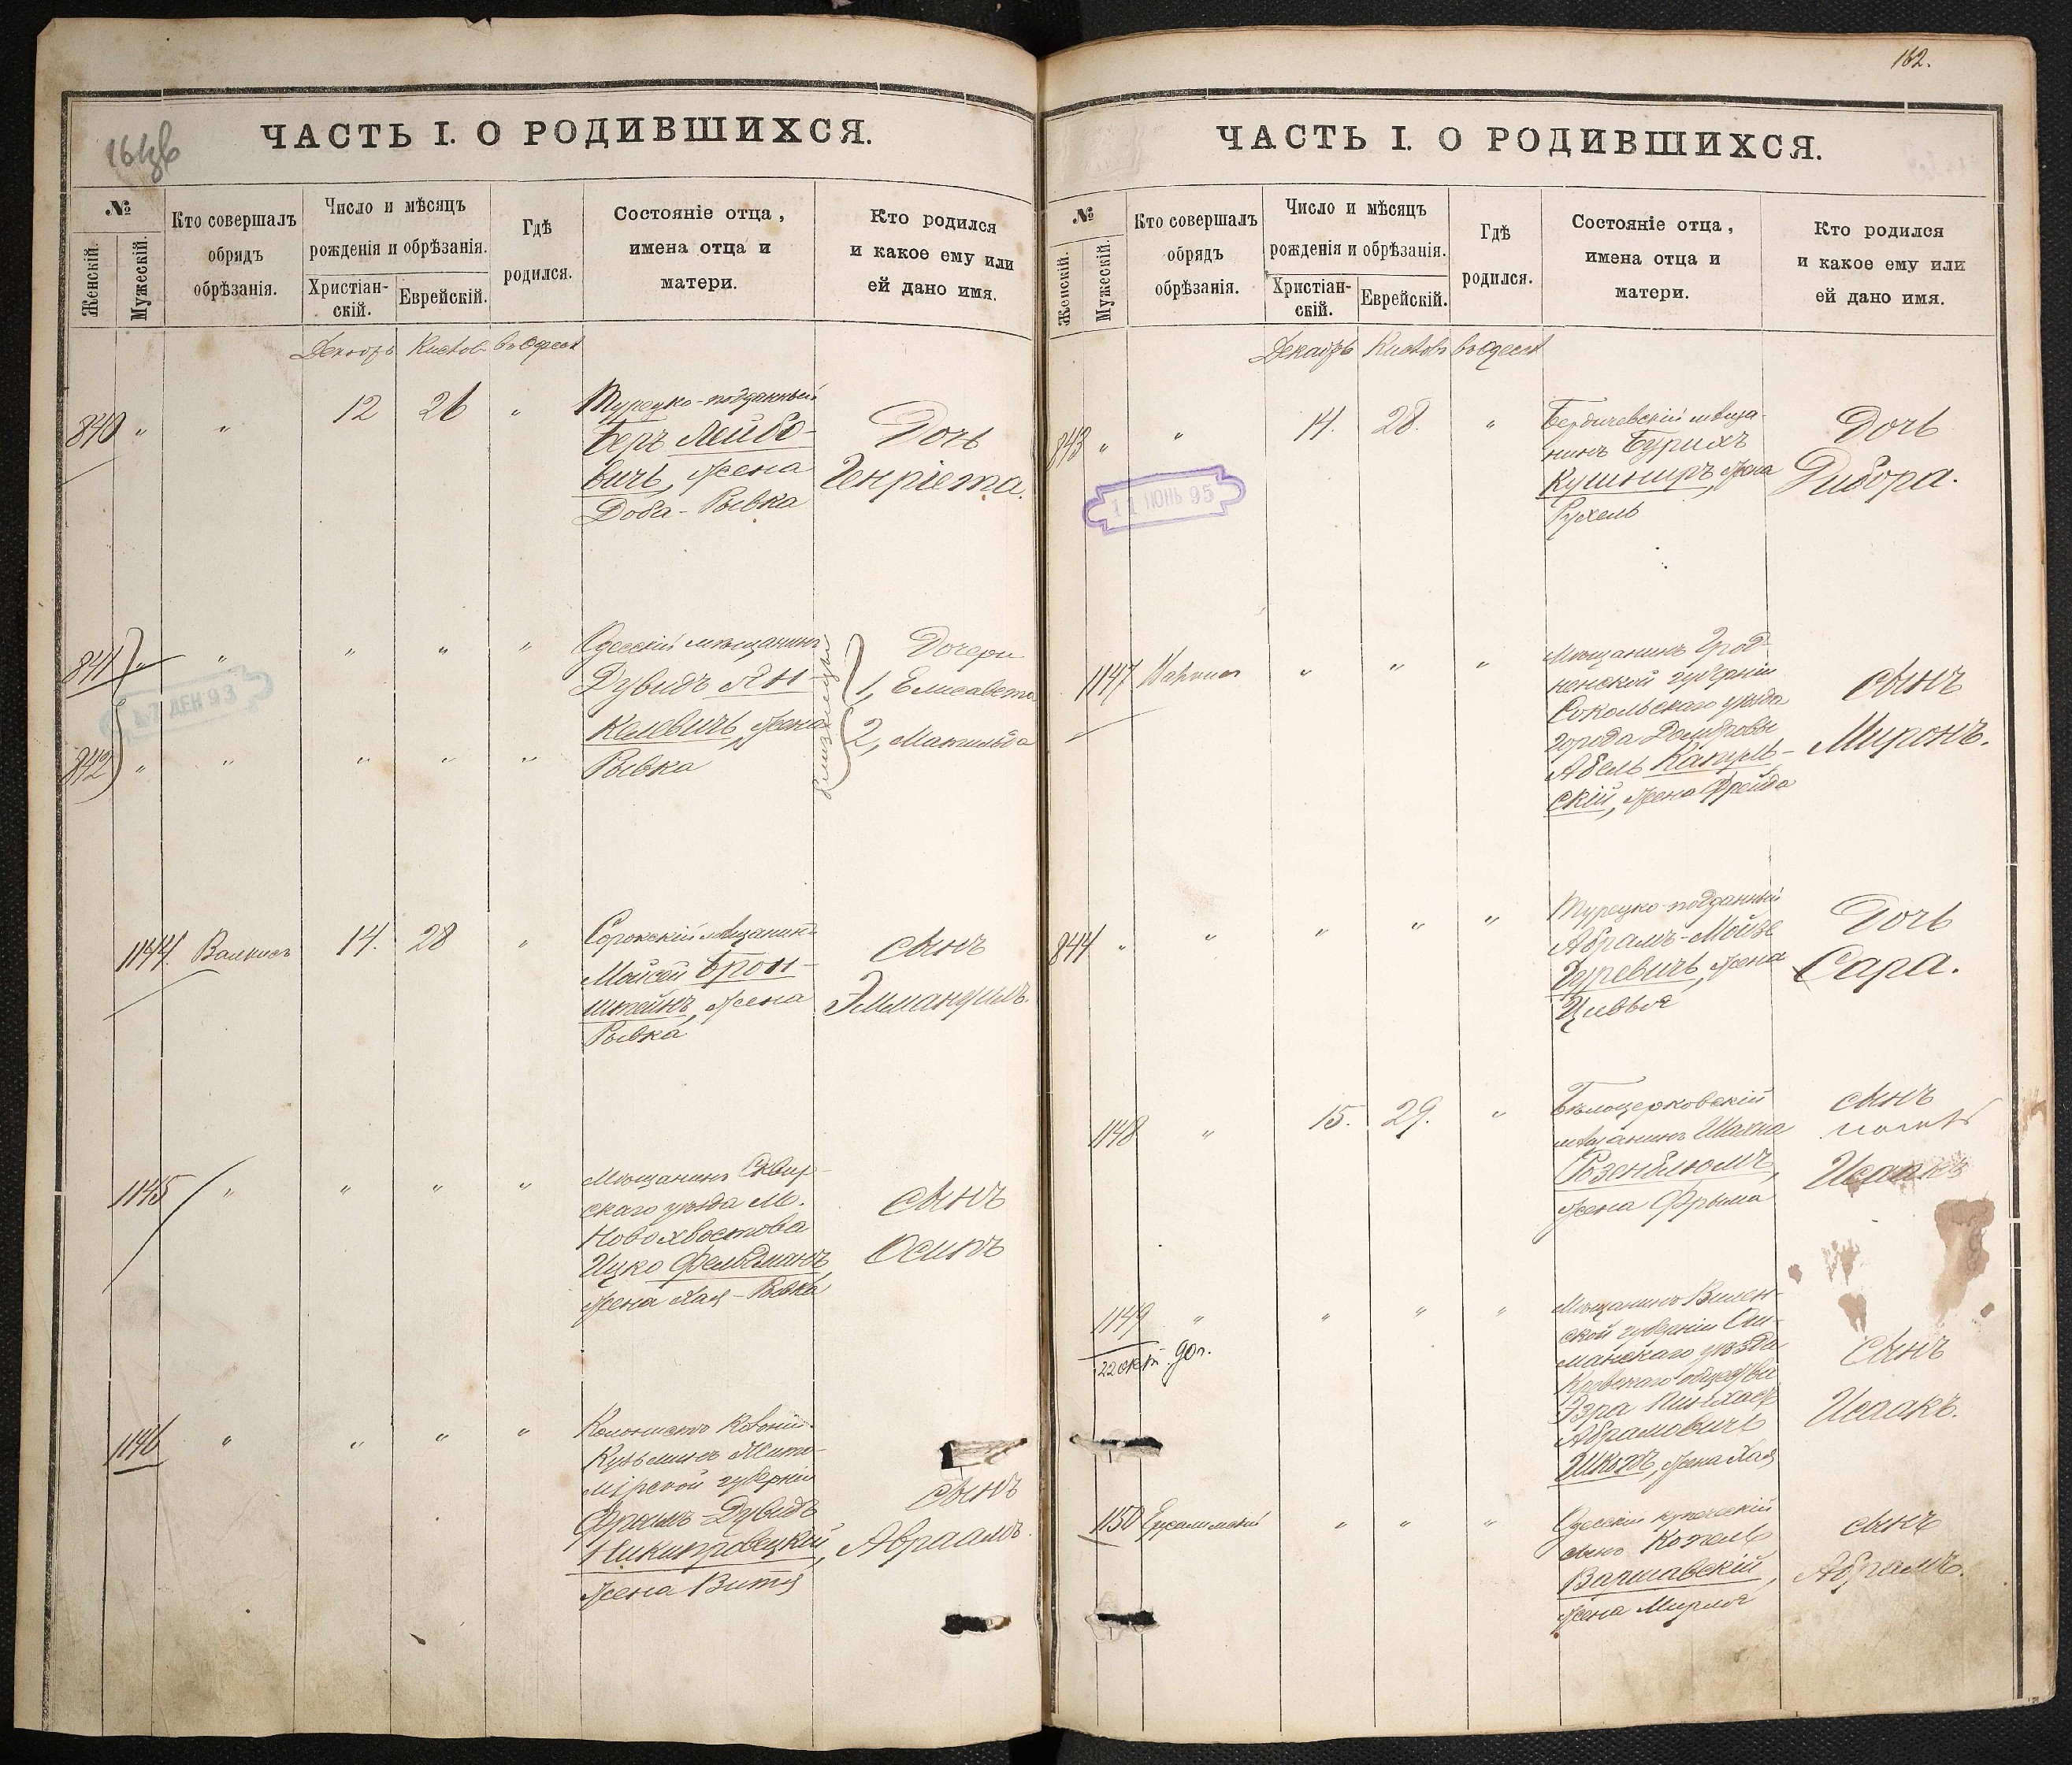 161об
ЧАСТЬ I. О РОДИВШИХСЯ.
№
Женскій.
Мужескій.
Кто совершалъ
обрядъ
обрѣзанія.
Число и мѣсяцъ
рожденія и обрѣзанія.
Христіан-
скій.
Еврейскій.
Гдѣ
родился.
Состояніе отца,
имена отца и
матери.
Кто родился
и какое ему или
ей дано имя.
Декабрь Кислов въ Одессѣ
840 " " 12 26 "
Турецко-подданный
Беръ Лейбо-
вичъ, жена
Доба-Рывка
Дочь
Генріета.
841 " " " " "
842 " " " " "
7 ДЕК 93
Одесскій мѣщанинъ
Дувидъ Ян-
келевичъ, жена
Рывка
близнецы
Дочери
1, Елисавета
2, Матильда
1144. Валнисъ 14. 28 "
Сорокскій мѣщанинъ
Мойсей Брон-
штейнъ, жена
Рывка
сынъ
1145 " " " "
Мѣщанинъ Сквир-
скаго уѣзда м.
Новохвостова
Ицко Фельдманъ,
жена Хая-Рывка
сынъ
Осипъ
1146 " " " "
Колонистъ
Жито-
мірской губерніи
Фроимъ-Дувидъ
Никипровецкій,
жена Витя
сынъ
Авраамъ.
162.
ЧАСТЬ I. О РОДИВШИХСЯ.
№
Женскій.
Мужескій.
Кто совершалъ
обрядъ
обрѣзанія.
Число и мѣсяцъ
рожденія и обрѣзанія.
Христіан-
скій.
Еврейскій.
Гдѣ
родился.
Состояніе отца,
имена отца и
матери.
Кто родился
и какое ему или
ей дано имя.
Декабрь Кислов въ Одессѣ
843 " " 14. 28. "
11 ІЮНЬ 95
Бердичевскій мѣща-
нинъ Бурихъ
Кушниръ, жена
Рухель
Дочь
Двбора.
1147 " " "
Мѣщанинъ Грод-
ненской губерніи
Сокольскаго уѣзда
города Домбровы
Абель Каприв-
скій, жена Фрейда
сынъ
Миронъ.
844 " " " " "
Турецко-подданный
Абрамъ-Мойзе
Гуревичъ, жена
Цивья
Дочь
Сара.
1148 " 15. 29. "
Бѣлоцерковскій
мѣщанинъ Шахна
Розенблюмъ,
жена Фрыма
сынъ
Исаакъ
1149 " " " "
22 окт 90г.
Мѣщанинъ Вилен-
ской губерніи Ош-
мянскаго уѣзда
Кревскаго общества
Эзра Пинхасъ
Абрамовичъ
Школъ, жена Хая
сынъ
Исаакъ.
1150 " " "
Одесскій купеческій
сынъ Копель
Варшавскій,
жена Мирля
сынъ
Абрамъ.